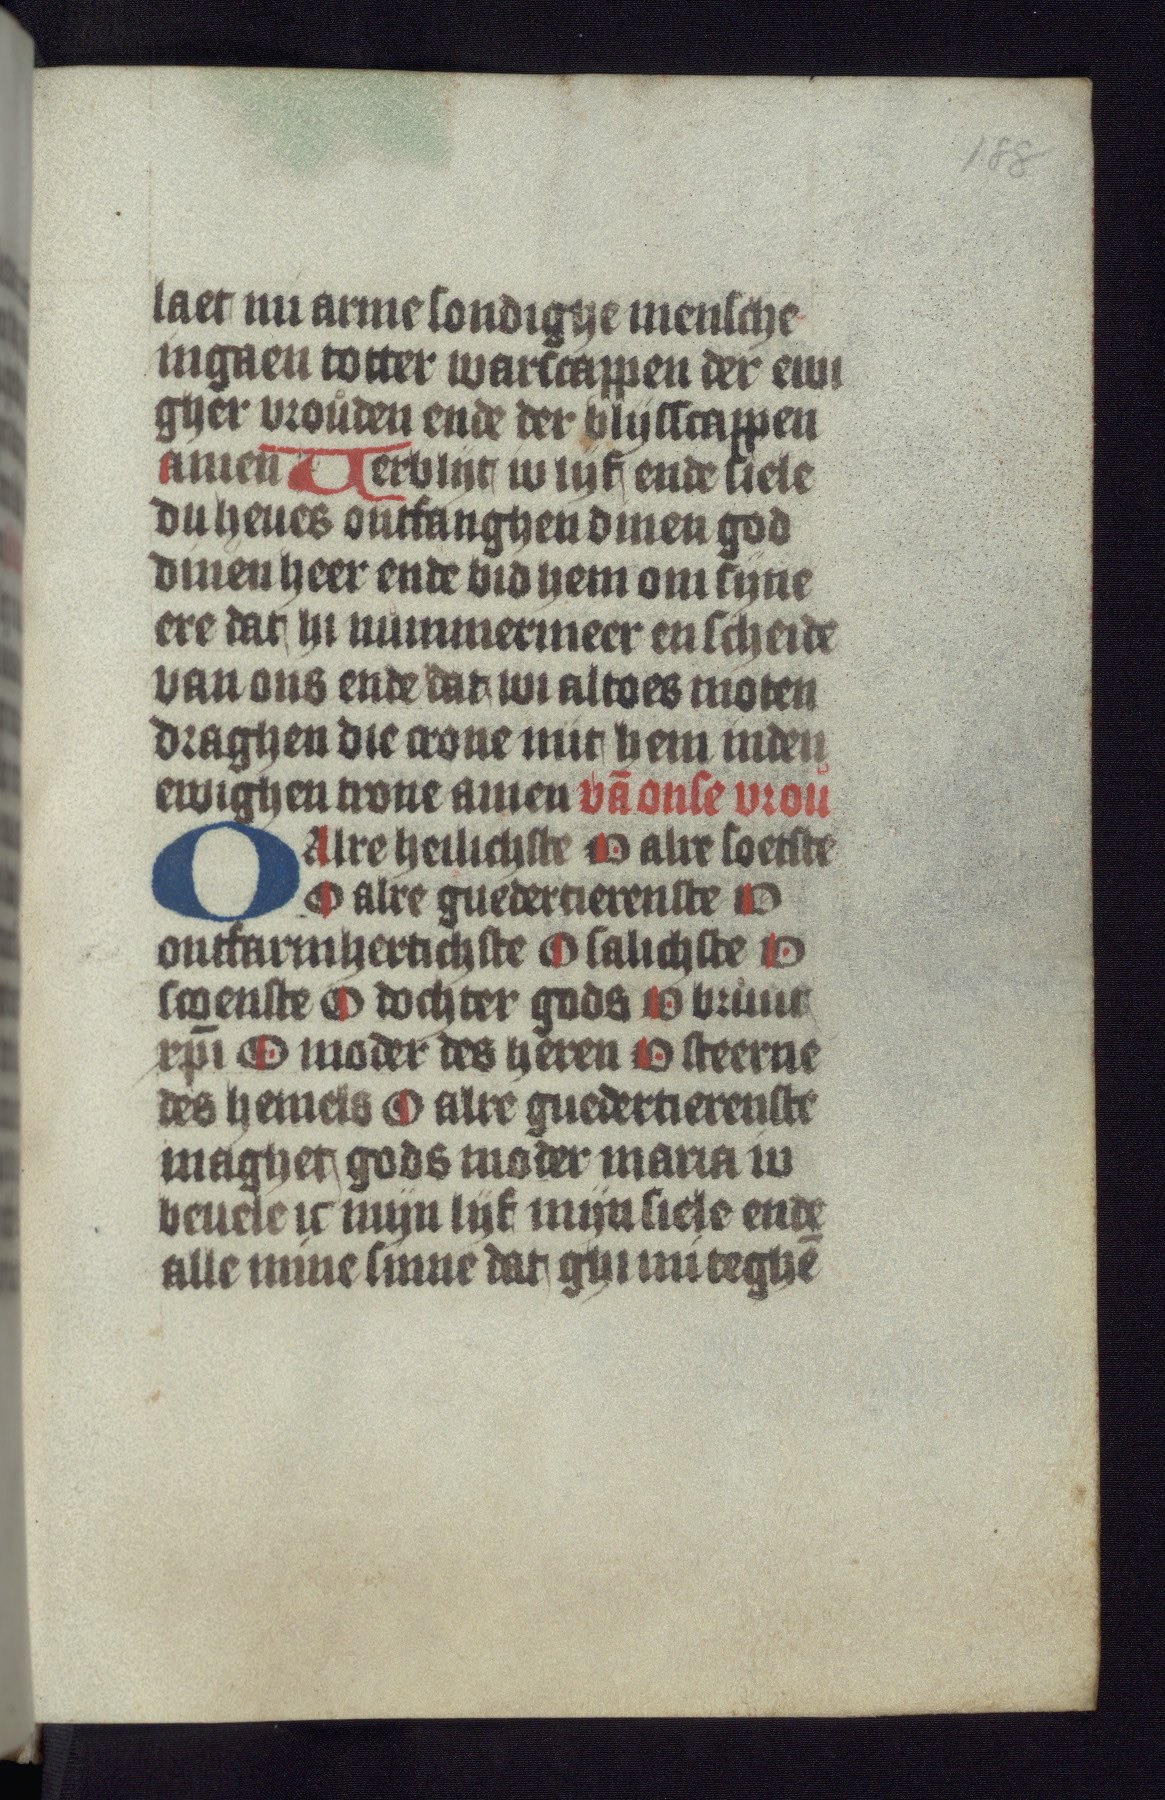 188
laet mi arme sondighe mensche
ingaen totter warscappen der ewi
gher vrouden ende der blijsscappen
amen Verblijt w lijf ende siele
du heues ontfanghen dinen god
dinen heer ende bid hem om sijne
ere dat hi nummermeer en scheide
van ons ende dat wi altoes moten
draghen die crone mit hem inden
ewighen trone amen vā onse vrou
O Alre heilichste O alre soetste
O alre guedertierenste O
ontfarmhertichste O salichste O
scoenste O dochter gods O bruut
xp̄i O moder des heren O steerne
des hemels O alre guedertierenste
maghet gods moder maria w
beuele ic mijn lijf mijn siele ende
alle mine sinne dat ghi mi teghē